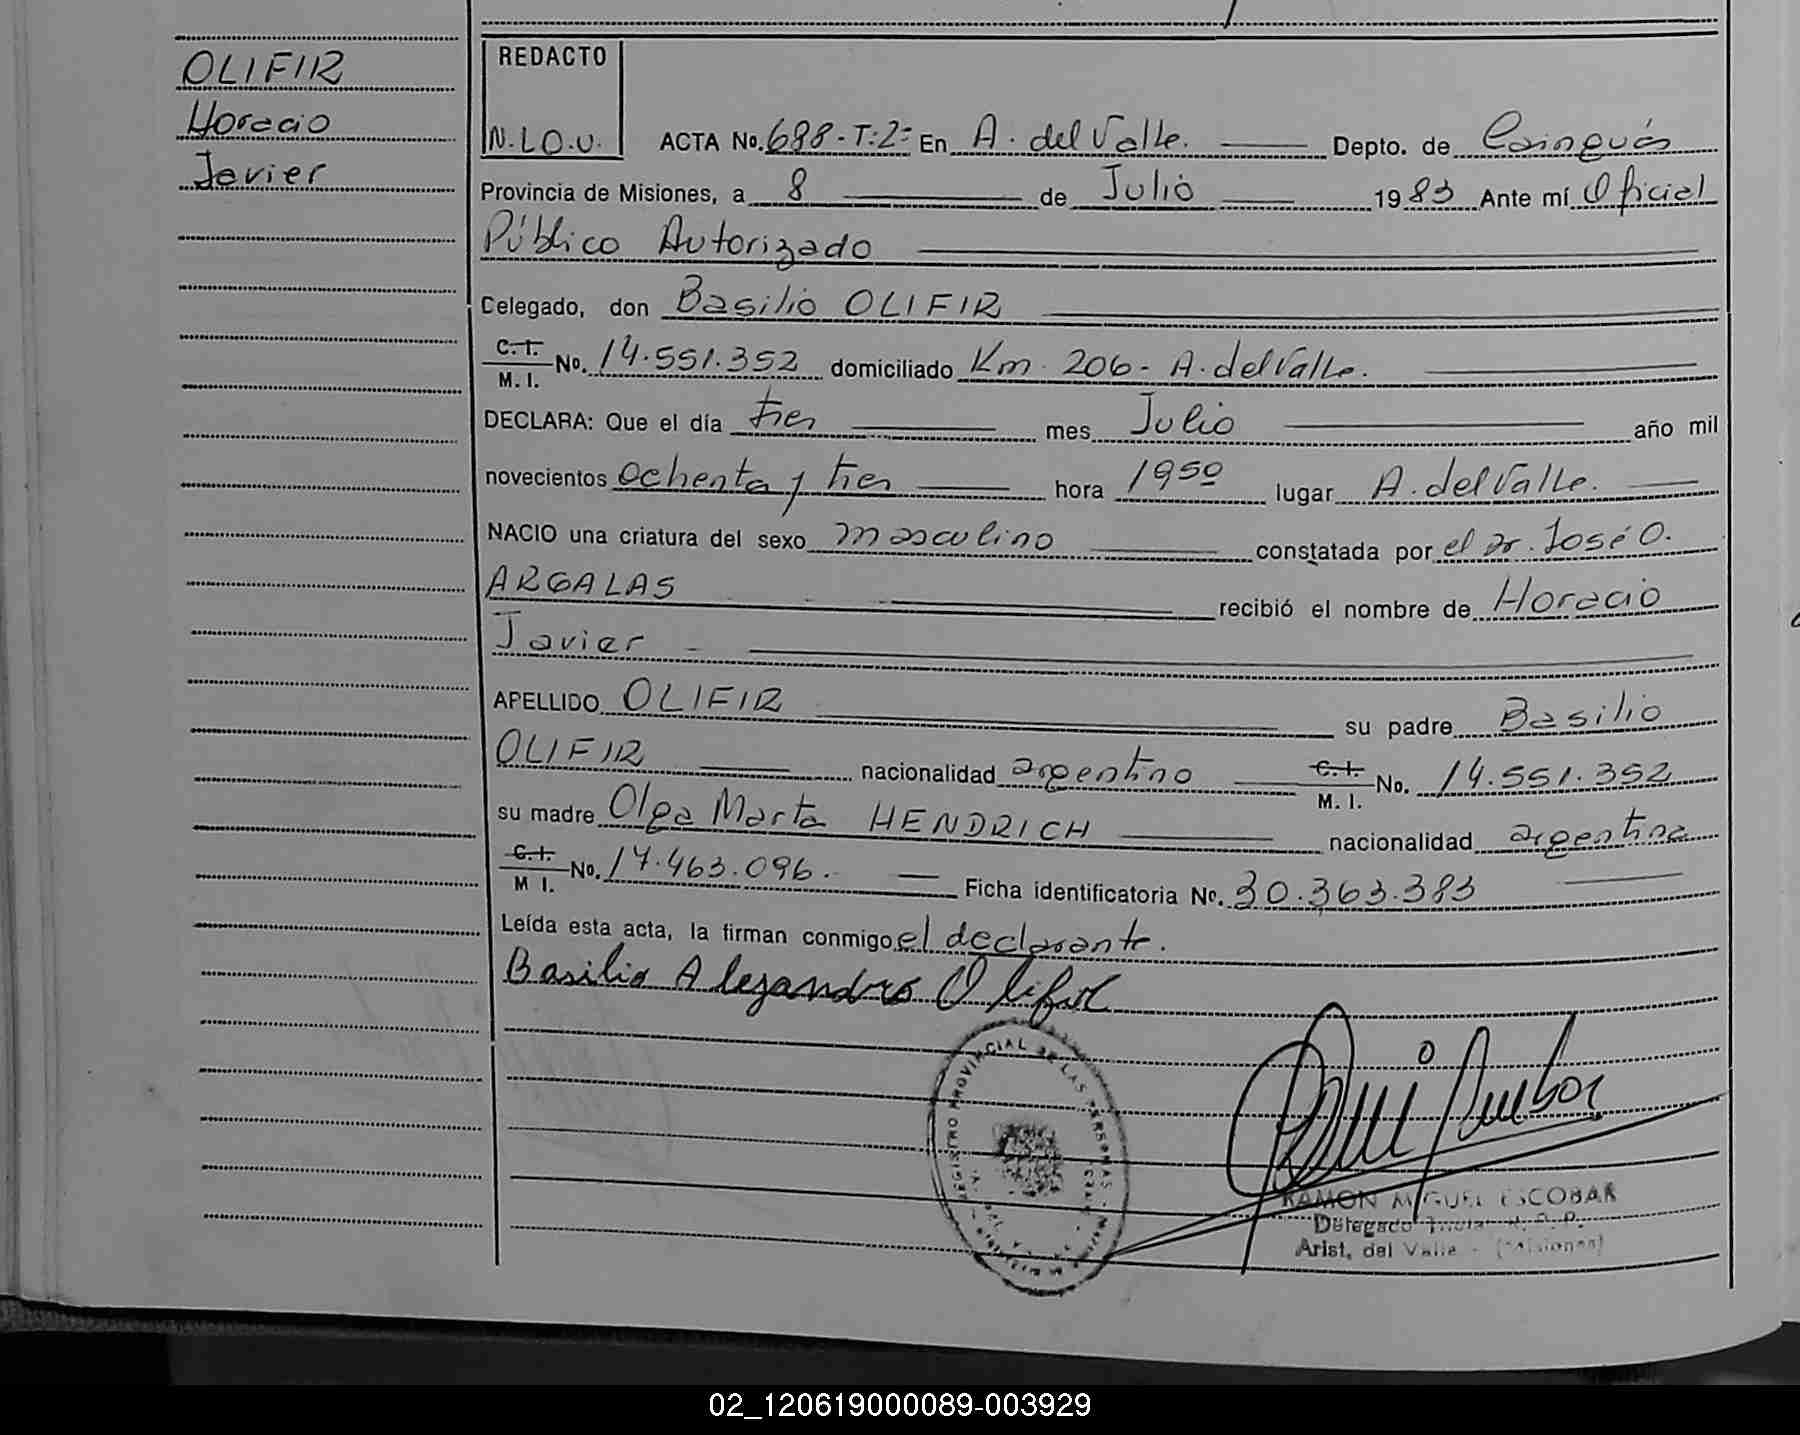 OLIFIR
Horacio
Javier
REDACTO
N.L.O.U.
ACTA No. 688-T:2= En A. del Valle. Depto. de Cainguás
Provincia de Misiones, a 8 de Julio 1983 Ante mí Oficial
Público Autorizado
Celegado, don Basilio OLIFIR
C.I. M. I. No. 14.551.352 domiciliado Km. 206- A. del Valle.
DECLARA: Que el día tres mes Julio año mil
novecientos ochenta y tres hora 1950 lugar A. del Valle.
NACIO una criatura del sexo masculino constatada por el Dr. José O.
ARGALAS recibió el nombre de Horacio
Javier
APELLIDO OLIFIR su padre Basilio
OLIFIR nacionalidad argentino C.I. M. I. No. 14.551.352
su madre Olga Marta HENDRICH nacionalidad argentina
C.I. M I. No. 17.463.096. Ficha identificatoria No. 30.363.383
Leída esta acta, la firman conmigo el declarante.
Basilio Alejandro Olifir
REGISTRO PROVINCIAL DE LAS PERSONAS
RAMON MIGUEL ESCOBAR
Delegado Titular R. P. P.
Arist. del Valle - (Misiones)
02_120619000089-003929